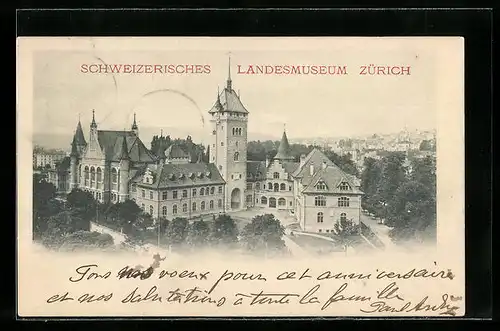 SCHWEIZERISCHES LANDESMUSEUM ZÜRICH
Tous nos voeux pour cet anniversaire
et nos salutations à toute la famille
Paul